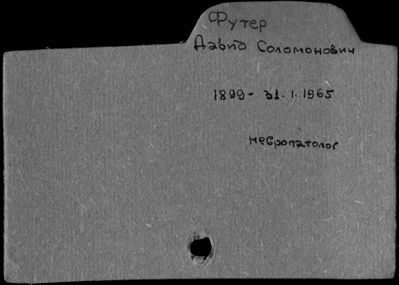 Футер
Давид Соломонович
1899 - 31.1.1965
невропатолог